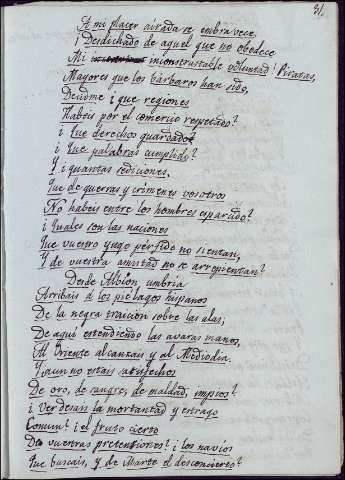 31.
A mi placer airada se embravece.
Desdichado de aquel que no obedece
Mi incontrastable voluntad! Piratas,
Mayores que los bárbaros han sido,
Decidme ¿que regiones
Habeis por el comercio respetado?
¿Que derechos guardado?
¿Que palabras cumplido?
Y ¿quantas sediciones,
Que de guerras y crimenes vosotros
No habeis entre los hombres esparcido?
¿Quales son las naciones
Que vuestro yugo pérfido no sientan,
Y de vuestra amistad no se arrepientan?
Desde Albion umbria
Arribais á los pielagos hispanos
De la negra traicion sobre las alas;
De aqui estendiendo las avaras manos,
Al Oriente alcanzais y al Mediodia.
Y ¿aun no estais satisfechos
De oro, de sangre, de maldad, impios?
¿Ver deseais la mortandad y estrago
Comun? ¿el fruto cierto
De vuestras pretensiones? ¿los navios
Que buscais, y de Marte el desconcierto?